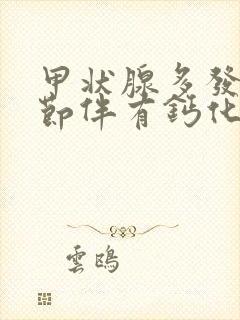 甲状腺多發
節伴有鈣化
雲鴎